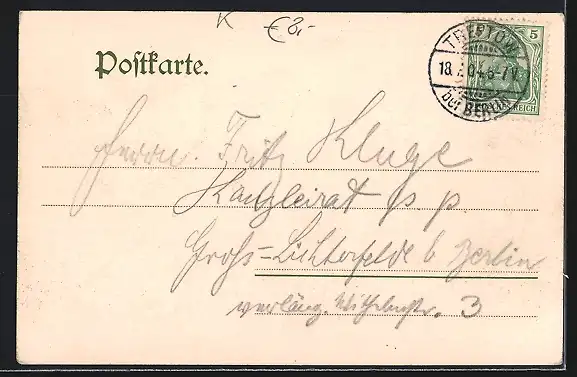 K €8,-
Postkarte.
5
TREPTOW
18.7.04.6-7V.
bei BERLIN
REICH
Herrn Fritz Kluge
Kanzleirat p. p.
Groß-Lichterfelde b Berlin
verläng. Wilhelmstr. 3